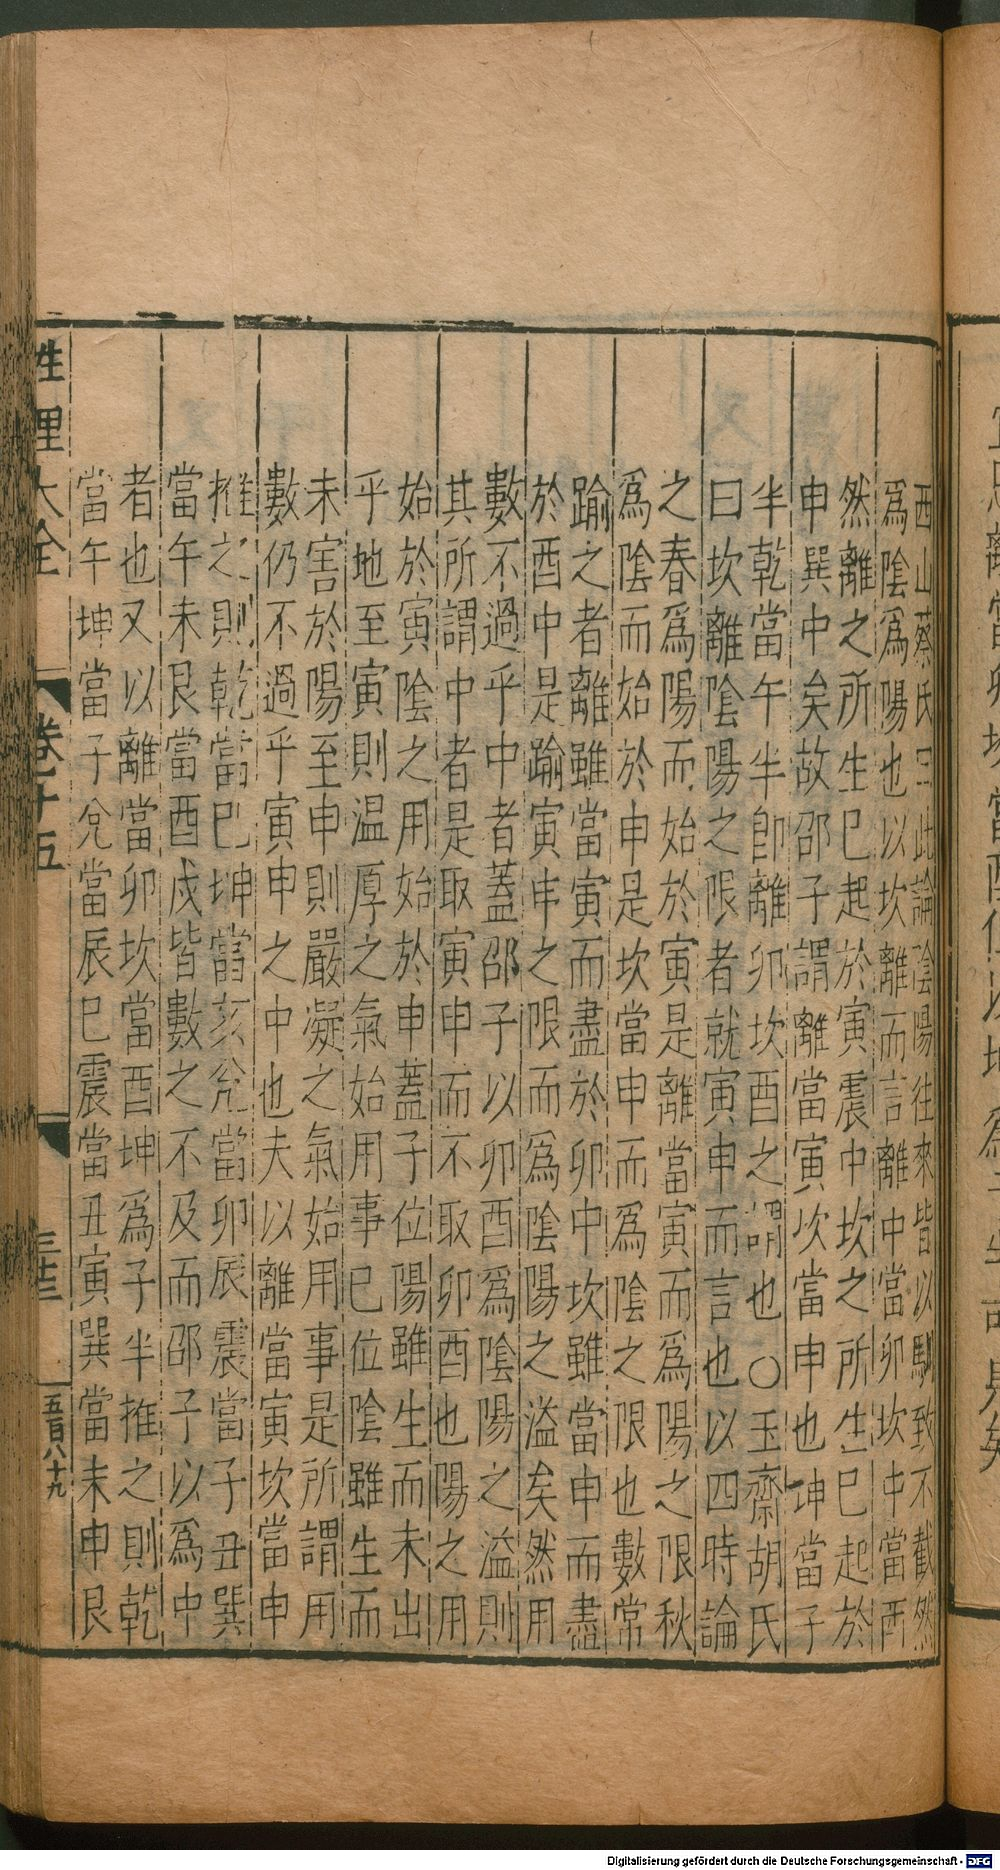 西山蔡氏曰此論陰陽往來皆以馴致不截然
爲陰爲陽也以坎離而言離中當卯坎中當酉
然離之所生已起於寅震中坎之所生已起於
申巽中矣故邵子謂離當寅坎當申也坤當子
半乾當午半即離卯坎酉之謂也○玉齋胡氏
曰坎離陰陽之限者就寅申而言也以四時論
之春爲陽而始於寅是離當寅而爲陽之限秋
爲陰而始於申是坎當申而爲陰之限也數常
踰之者離雖當寅而盡於卯中坎雖當申而盡
於酉中是踰寅申之限而爲陰陽之溢矣然用
數不過乎中者蓋邵子以卯酉爲陰陽之溢則
其所謂中者是取寅申而不取卯酉也陽之用
始於寅陰之用始於申蓋子位陽雖生而未出
乎地至寅則温厚之氣始用事巳位陰雖生而
未害於陽至申則嚴凝之氣始用事是所謂用
數仍不過乎寅申之中也夫以離當寅坎當申
推之則乾當巳坤當亥兊當卯辰震當子丑巽
當午未艮當酉戌皆數之不及而邵子以爲中
者也又以離當卯坎當酉坤爲子半推之則乾
當午坤當子兊當辰巳震當丑寅巽當未申艮
性理大全
卷十五
五百八十九
Digitalisierung gefördert durch die Deutsche Forschungsgemeinschaft - DFG